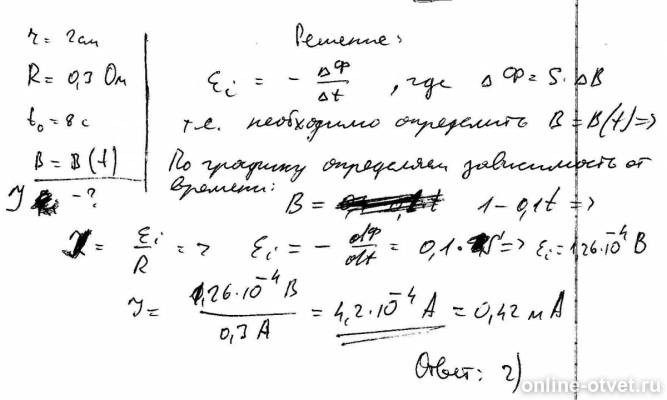 r = 2см
R = 0,3 Ом
t₀ = 8 с
B = B(t)
J - ?
Решение:
Ɛi = - ΔФ/Δt , где ΔФ = S · ΔB
т.е. необходимо определить B = B(t) =>
По графику определяем зависимость от
времени:
B = 1 - 0,1t =>
J = Ɛi/R => Ɛi = - dФ/dt = 0,1 · S => Ɛi = 1,26·10⁻⁴ В
J = 1,26·10⁻⁴ В/0,3 А = 4,2·10⁻⁴ А = 0,42 мА
Ответ: 2)
online-otvet.ru